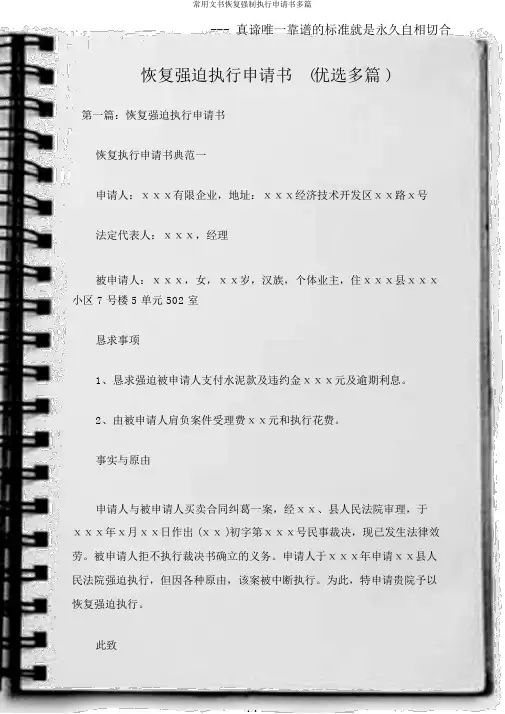 常用文书恢复强制执行申请书多篇
--- 真谛唯一靠谱的标准就是永久自相切合
恢复强迫执行申请书 (优选多篇)
第一篇：恢复强迫执行申请书
恢复执行申请书典范一
申请人：ｘｘｘ有限企业，地址：ｘｘｘ经济技术开发区ｘｘ路ｘ号
法定代表人：ｘｘｘ，经理
被申请人：ｘｘｘ，女，ｘｘ岁，汉族，个体业主，住ｘｘｘ县ｘｘｘ
小区 7 号楼 5 单元 502 室
恳求事项
1、恳求强迫被申请人支付水泥款及违约金ｘｘｘ元及逾期利息。
2、由被申请人肩负案件受理费ｘｘ元和执行花费。
事实与原由
申请人与被申请人买卖合同纠葛一案，经ｘｘ、县人民法院审理，于
ｘｘｘ年ｘ月ｘｘ日作出 (ｘｘ)初字第ｘｘｘ号民事裁决，现已发生法律效
劳。被申请人拒不执行裁决书确立的义务。申请人于ｘｘｘ年申请ｘｘ县人
民法院强迫执行，但因各种原由，该案被中断执行。为此，特申请贵院予以
恢复强迫执行。
此致